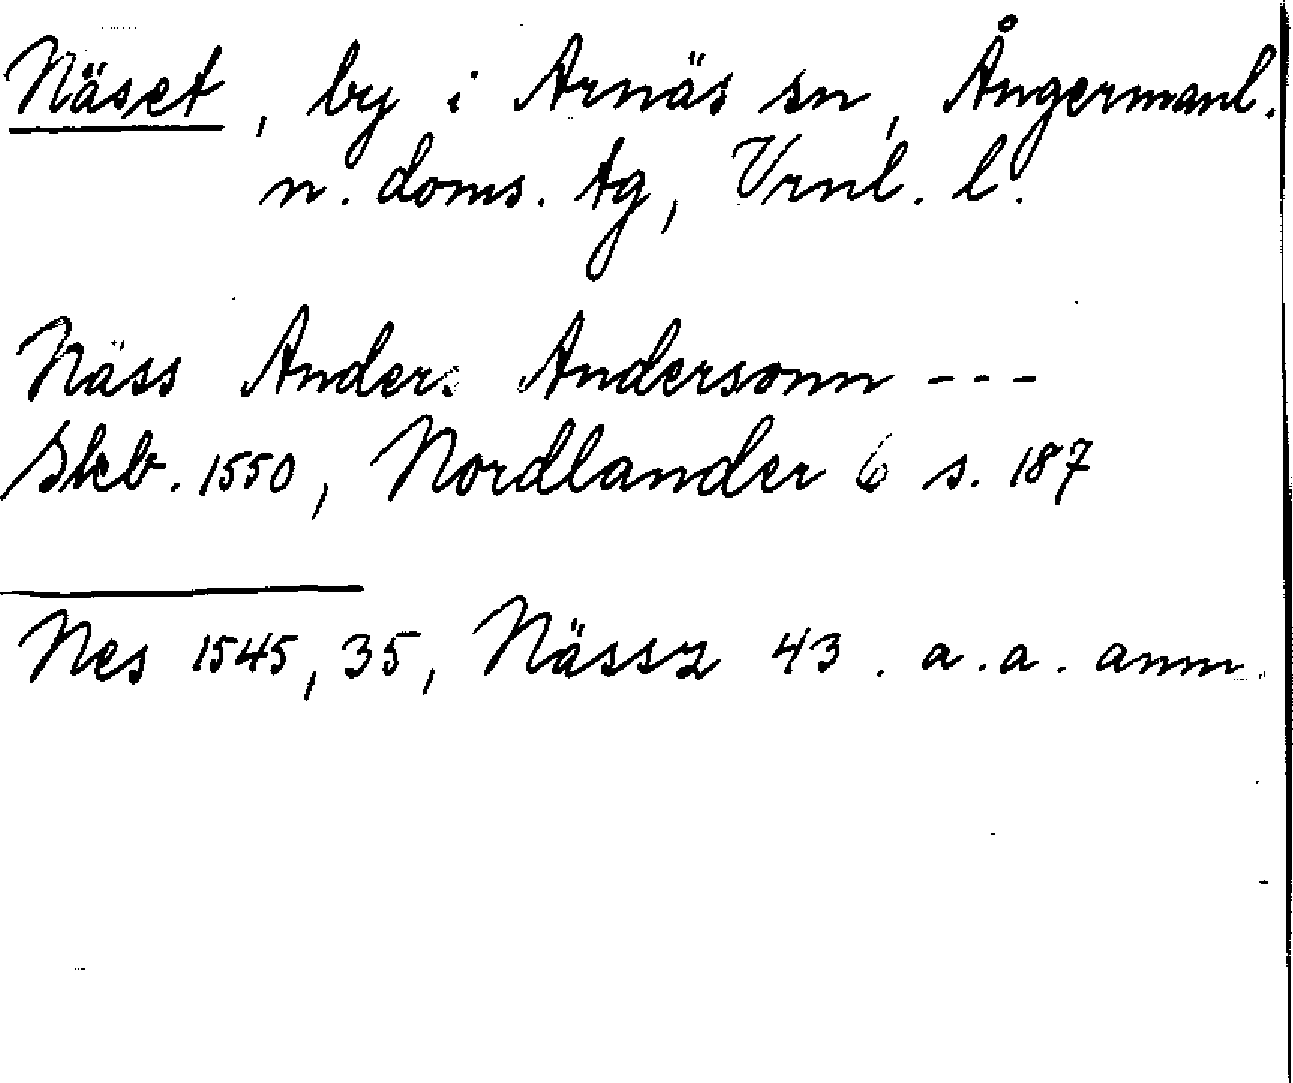 Näset, by i Arnäs sn, Ångermanl.
n. doms. tg, Vrnl. l.
Näss Anders Andersonn ---
Skb. 1550, Nordlander 6 s. 187
Nes 1545, 35, Nässz 43. a.a. anm.